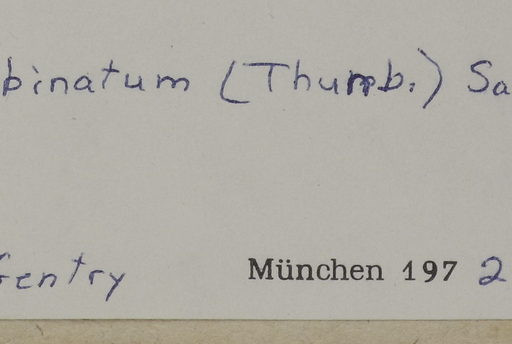 binatum (Thunb.) Sa
Gentry München 1972